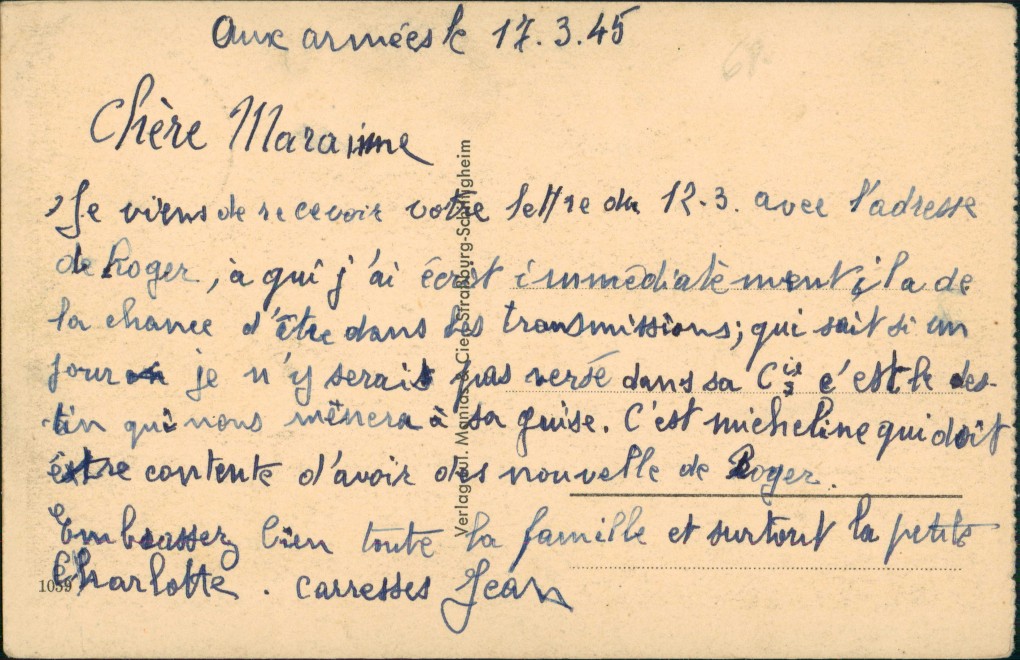 Aux armées le 17.3.45
68
Chère Maraine
Je viens de recevoir votre lettre du 12-3. avec l'adresse
de Roger, à qui j'ai écrit immédiatement, il a de
la chance d'être dans les transmissions; qui sait si un
jour je n'y serait pas versé dans sa Cie; c'est le des-
tin qui nous mènera à sa guise. C'est micheline qui doit
être contente d'avoir des nouvelle de Roger.
Embrassez bien toute la famille et surtout la petite
Charlotte. carresses Jean
1059
Verlag Jul. Manias & Cie., Straßburg-Schiltigheim